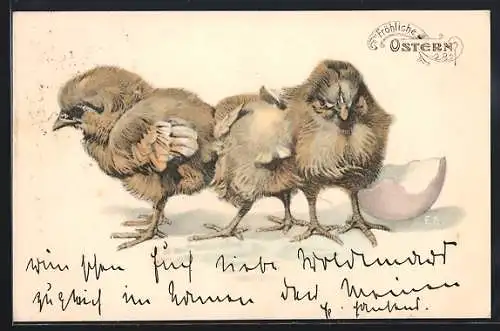 Fröhliche
OSTERN
wünschen Euch liebe Woldemars
zugleich im Namen der Meinen